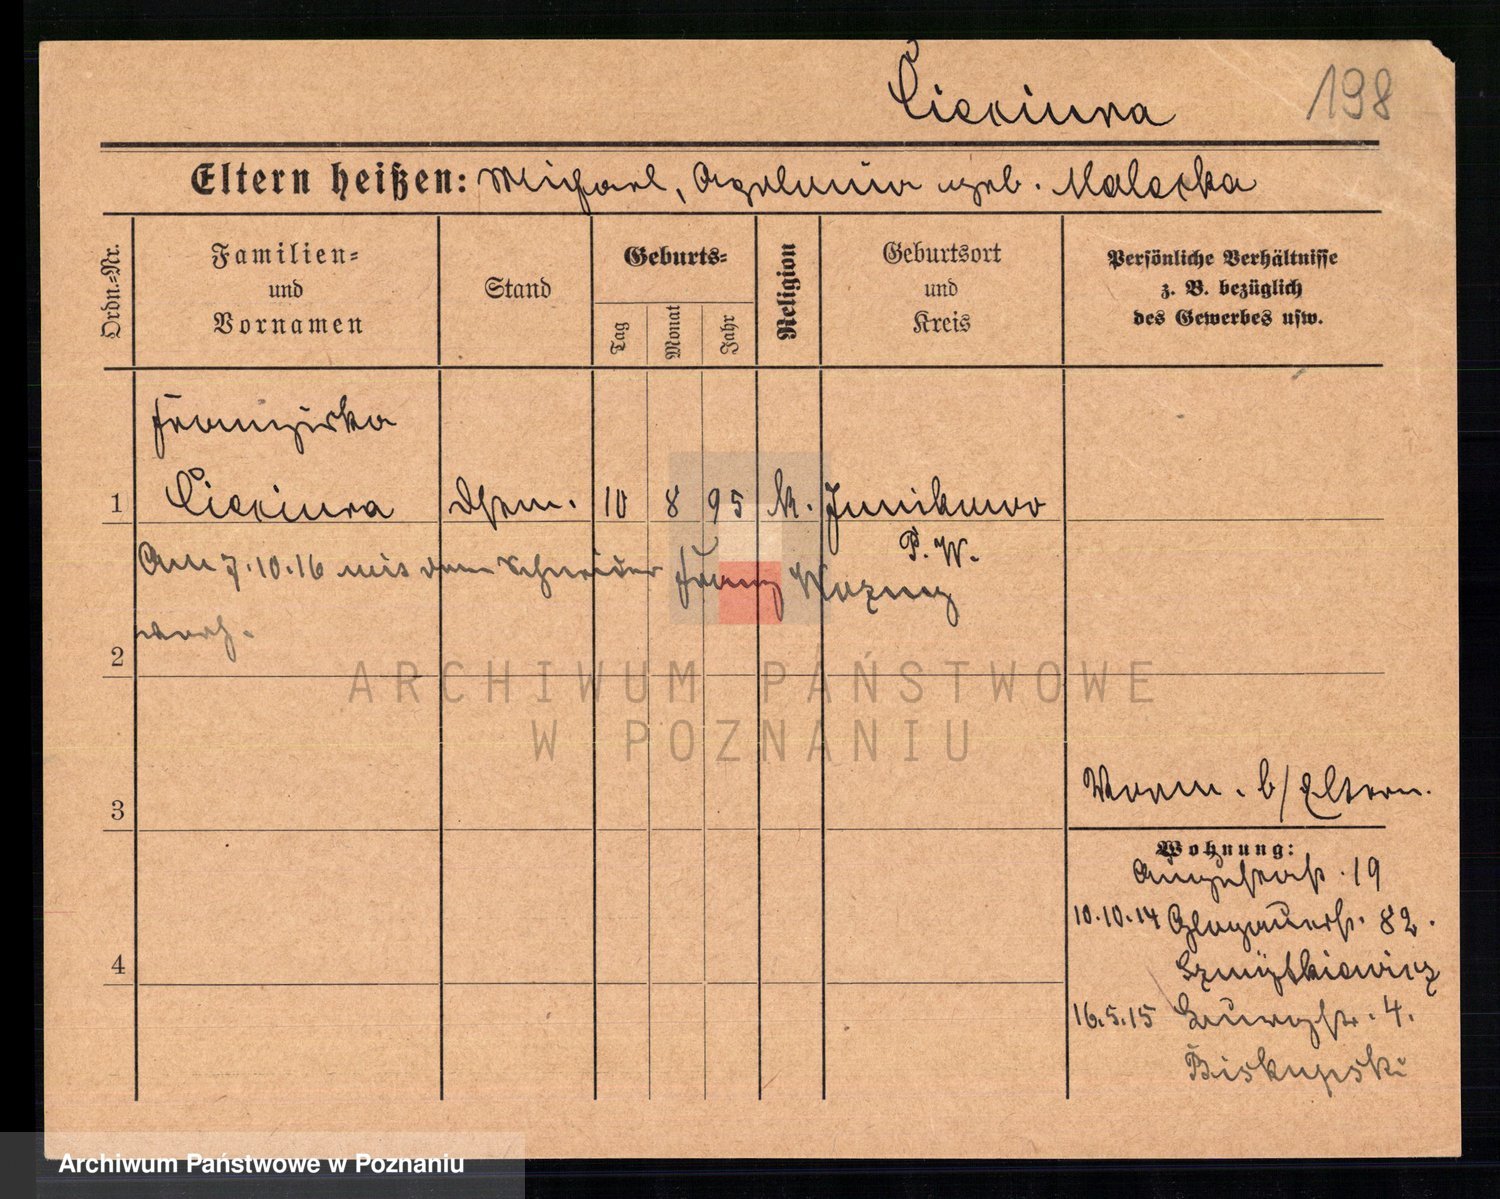 Cieciura
198
Eltern heißen: Michael, Apolonia geb. Malecka
Ordn.-Nr.
Familien-
und
Vornamen
Stand
Geburts-
Tag
Monat
Jahr
Religion
Geburtsort
und
Kreis
Persönliche Verhältnisse
z. B. bezüglich
des Gewerbes usw.
Franziska
1 Cieciura 10 8 95 k. Junikowo
P. W.
Am 7.10.16 mit dem Schneider Franz Wozny
verh.
2
3
Worm. b/ Eltern.
Wohnung:
Augustastr. 19
10.10.14 Glogauerstr. 82.
4
16.5.15 4.
Biskupski
ARCHIWUM PAŃSTWOWE
W POZNANIU
Archiwum Państwowe w Poznaniu